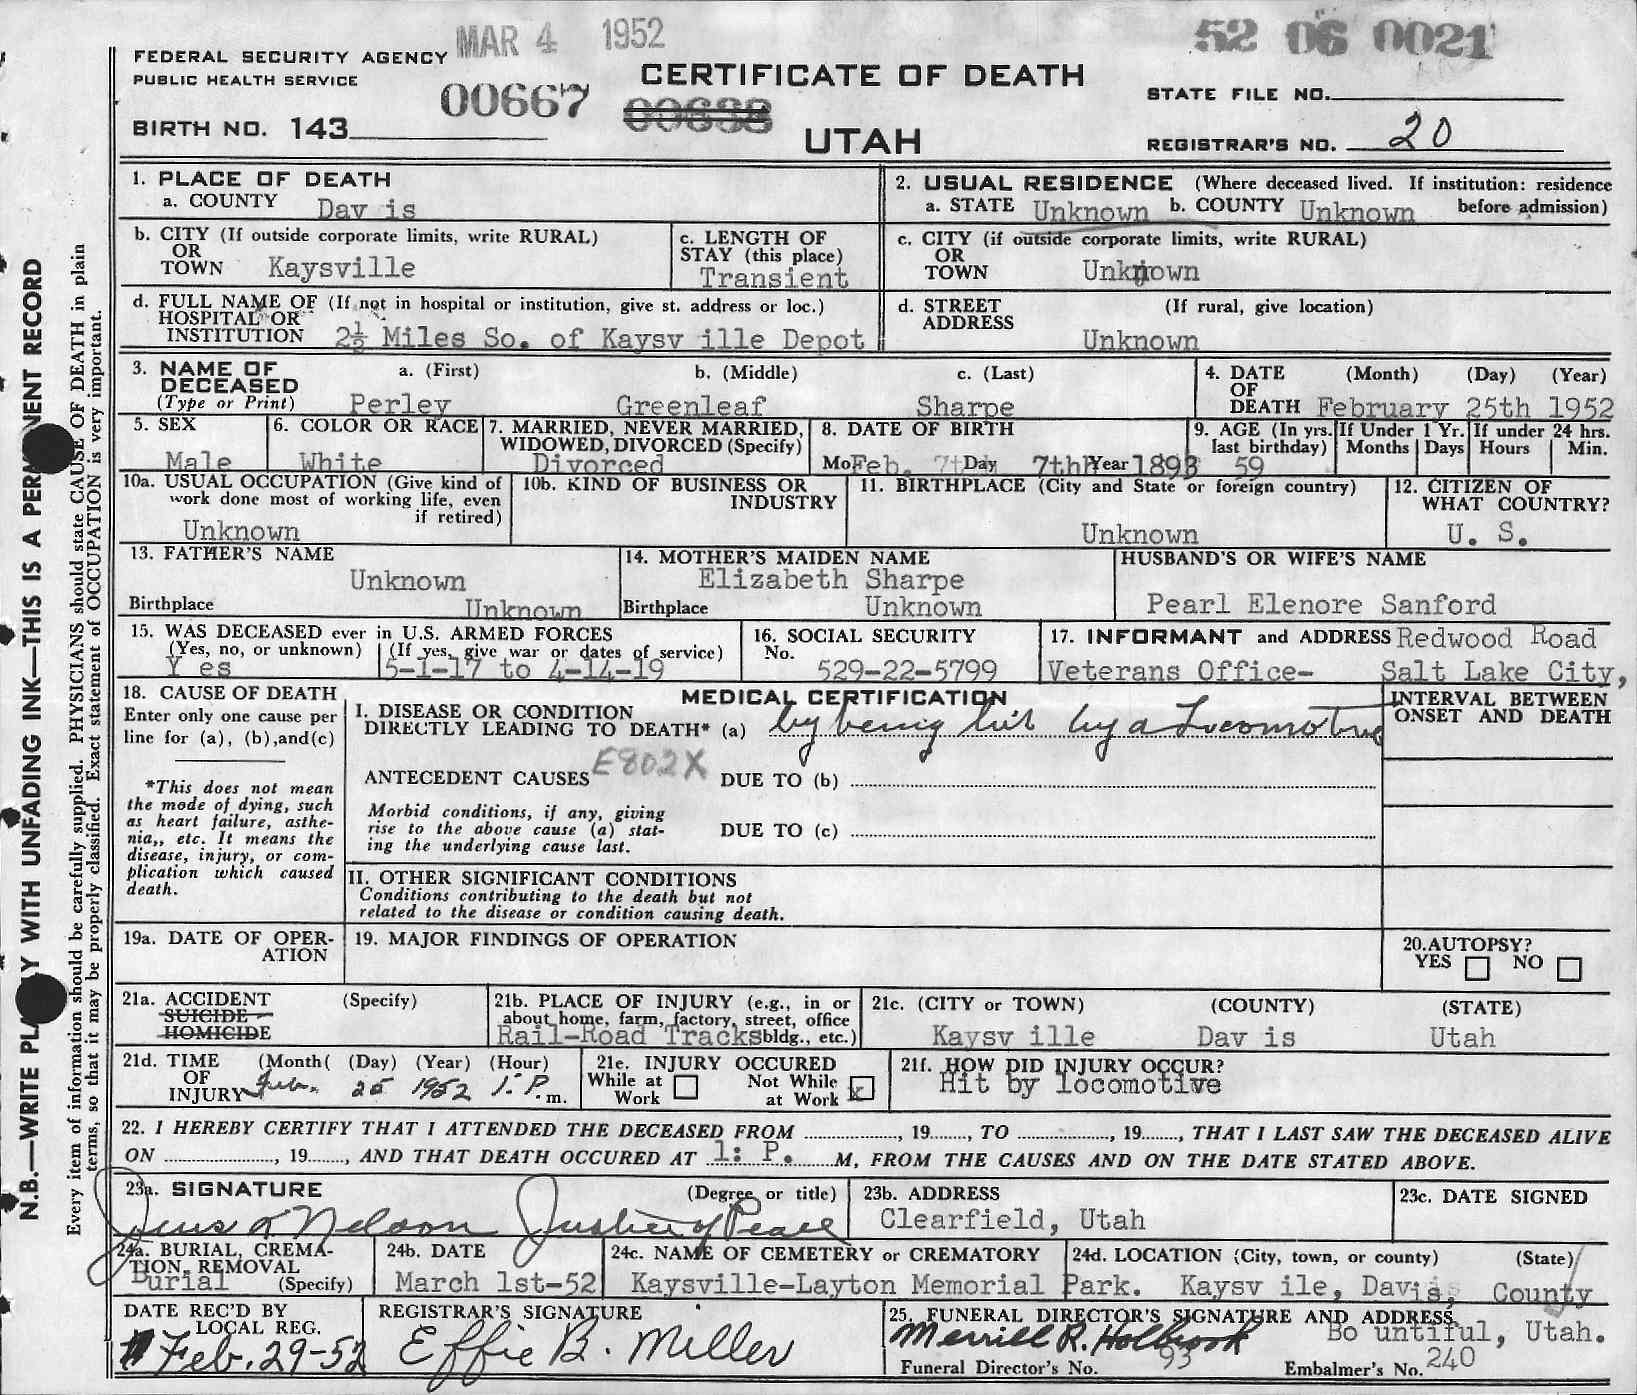 MAR 4 1952
52 06 0021
FEDERAL SECURITY AGENCY
PUBLIC HEALTH SERVICE
CERTIFICATE OF DEATH
00667 00688
UTAH
STATE FILE NO.
BIRTH NO. 143
REGISTRAR'S NO. 20
N.B.—WRITE PLAINLY WITH UNFADING INK—THIS IS A PERMANENT RECORD
Every item of information should be carefully supplied. PHYSICIANS should state CAUSE OF DEATH in plain
terms, so that it may be properly classified. Exact statement of OCCUPATION is very important.
1. PLACE OF DEATH
a. COUNTY Dav is
2. USUAL RESIDENCE (Where deceased lived. If institution: residence
a. STATE Unknown b. COUNTY Unknown before admission)
b. CITY (If outside corporate limits, write RURAL)
OR
TOWN Kaysville
c. LENGTH OF
STAY (this place)
Transient
c. CITY (if outside corporate limits, write RURAL)
OR
TOWN Unknown
d. FULL NAME OF (If not in hospital or institution, give st. address or loc.)
HOSPITAL OR
INSTITUTION 2½ Miles So. of Kaysv ille Depot
d. STREET (If rural, give location)
ADDRESS
Unknown
3. NAME OF
DECEASED
(Type or Print)
a. (First) b. (Middle) c. (Last)
Perley Greenleaf Sharpe
4. DATE (Month) (Day) (Year)
OF
DEATH February 25th 1952
5. SEX
Male
6. COLOR OR RACE
White
7. MARRIED, NEVER MARRIED,
WIDOWED, DIVORCED (Specify)
Divorced
8. DATE OF BIRTH
Mo Feb. 7th Day 7th Year 1893
9. AGE (In yrs.
last birthday)
59
If Under 1 Yr.
Months Days
If under 24 hrs.
Hours Min.
10a. USUAL OCCUPATION (Give kind of
work done most of working life, even
if retired)
Unknown
10b. KIND OF BUSINESS OR
INDUSTRY
11. BIRTHPLACE (City and State or foreign country)
Unknown
12. CITIZEN OF
WHAT COUNTRY?
U. S.
13. FATHER'S NAME
Unknown
Birthplace Unknown
14. MOTHER'S MAIDEN NAME
Elizabeth Sharpe
Birthplace Unknown
HUSBAND'S OR WIFE'S NAME
Pearl Elenore Sanford
15. WAS DECEASED ever in U.S. ARMED FORCES
(Yes, no, or unknown) (If yes, give war or dates of service)
Y es 5-1-17 to 4-14-19
16. SOCIAL SECURITY
No.
529-22-5799
17. INFORMANT and ADDRESS Redwood Road
Veterans Office- Salt Lake City,
18. CAUSE OF DEATH
Enter only one cause per
line for (a), (b), and (c)
*This does not mean
the mode of dying, such
as heart failure, asthe-
nia,, etc. It means the
disease, injury, or com-
plication which caused
death.
MEDICAL CERTIFICATION
I. DISEASE OR CONDITION
DIRECTLY LEADING TO DEATH* (a) by being hit by a Locomotive
ANTECEDENT CAUSES E802X DUE TO (b)
Morbid conditions, if any, giving
rise to the above cause (a) stat-
ing the underlying cause last.
DUE TO (c)
INTERVAL BETWEEN
ONSET AND DEATH
II. OTHER SIGNIFICANT CONDITIONS
Conditions contributing to the death but not
related to the disease or condition causing death.
19a. DATE OF OPER-
ATION
19. MAJOR FINDINGS OF OPERATION
20. AUTOPSY?
YES NO
21a. ACCIDENT (Specify)
SUICIDE
HOMICIDE
21b. PLACE OF INJURY (e.g., in or
about home, farm, factory, street, office
Rail-Road Tracks bldg., etc.)
21c. (CITY or TOWN) (COUNTY) (STATE)
Kaysv ille Dav is Utah
21d. TIME (Month( (Day) (Year) (Hour)
OF
INJURY Feb. 25 1952 1: P. m.
21e. INJURY OCCURED
While at Work
Not While at Work x
21f. HOW DID INJURY OCCUR?
Hit by locomotive
22. I HEREBY CERTIFY THAT I ATTENDED THE DECEASED FROM , 19 , TO , 19 , THAT I LAST SAW THE DECEASED ALIVE
ON , 19 , AND THAT DEATH OCCURED AT 1: P. M, FROM THE CAUSES AND ON THE DATE STATED ABOVE.
23a. SIGNATURE (Degree or title)
Nelson Justice of Peace
23b. ADDRESS
Clearfield, Utah
23c. DATE SIGNED
24a. BURIAL, CREMA-
TION, REMOVAL
Burial (Specify)
24b. DATE
March 1st-52
24c. NAME OF CEMETERY or CREMATORY
Kaysville-Layton Memorial Park.
24d. LOCATION (City, town, or county) (State)
Kaysv ile, Davis, County
DATE REC'D BY
LOCAL REG.
Feb. 29-52
REGISTRAR'S SIGNATURE
Effie B. Miller
25. FUNERAL DIRECTOR'S SIGNATURE AND ADDRESS
Merrill R. Holbrook Bo untiful, Utah.
Funeral Director's No. 93 Embalmer's No. 240